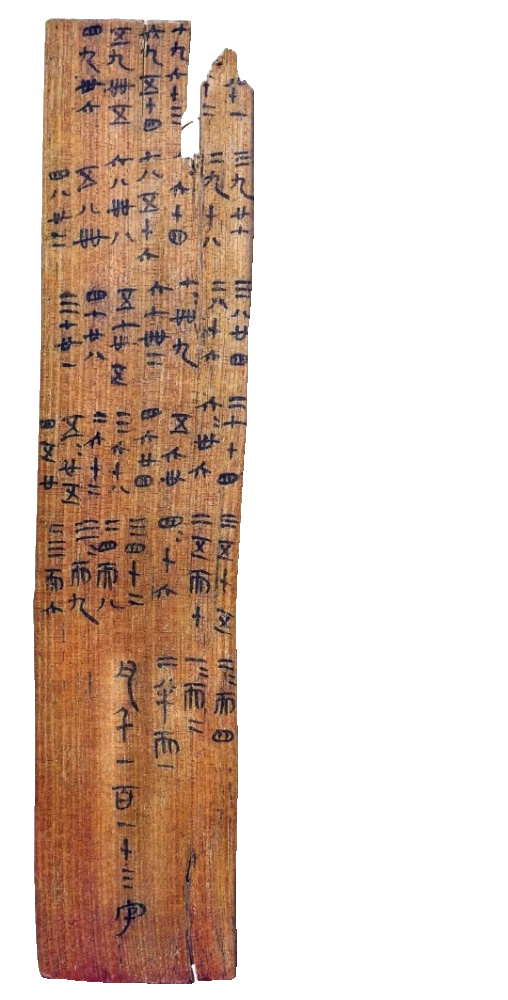 十一
二
七九六十三
六九五十四
五九卌五
四九卅六
三九廿七
二九十八
六十四
七八五十六
六八卌八
五八卌
四八卅二
三八廿四
二八十六
七=卌九
六七卌二
五七卅五
四七廿八
三七廿一
二七十四
六=卅六
五六卅
四六廿四
三六十八
二六十二
五=廿五
四五廿
三五十五
二五而十
四=十六
三四十二
二四而八
三=而九
二三而六
二=而四
一=而二
二半而一
凡千一百一十三字